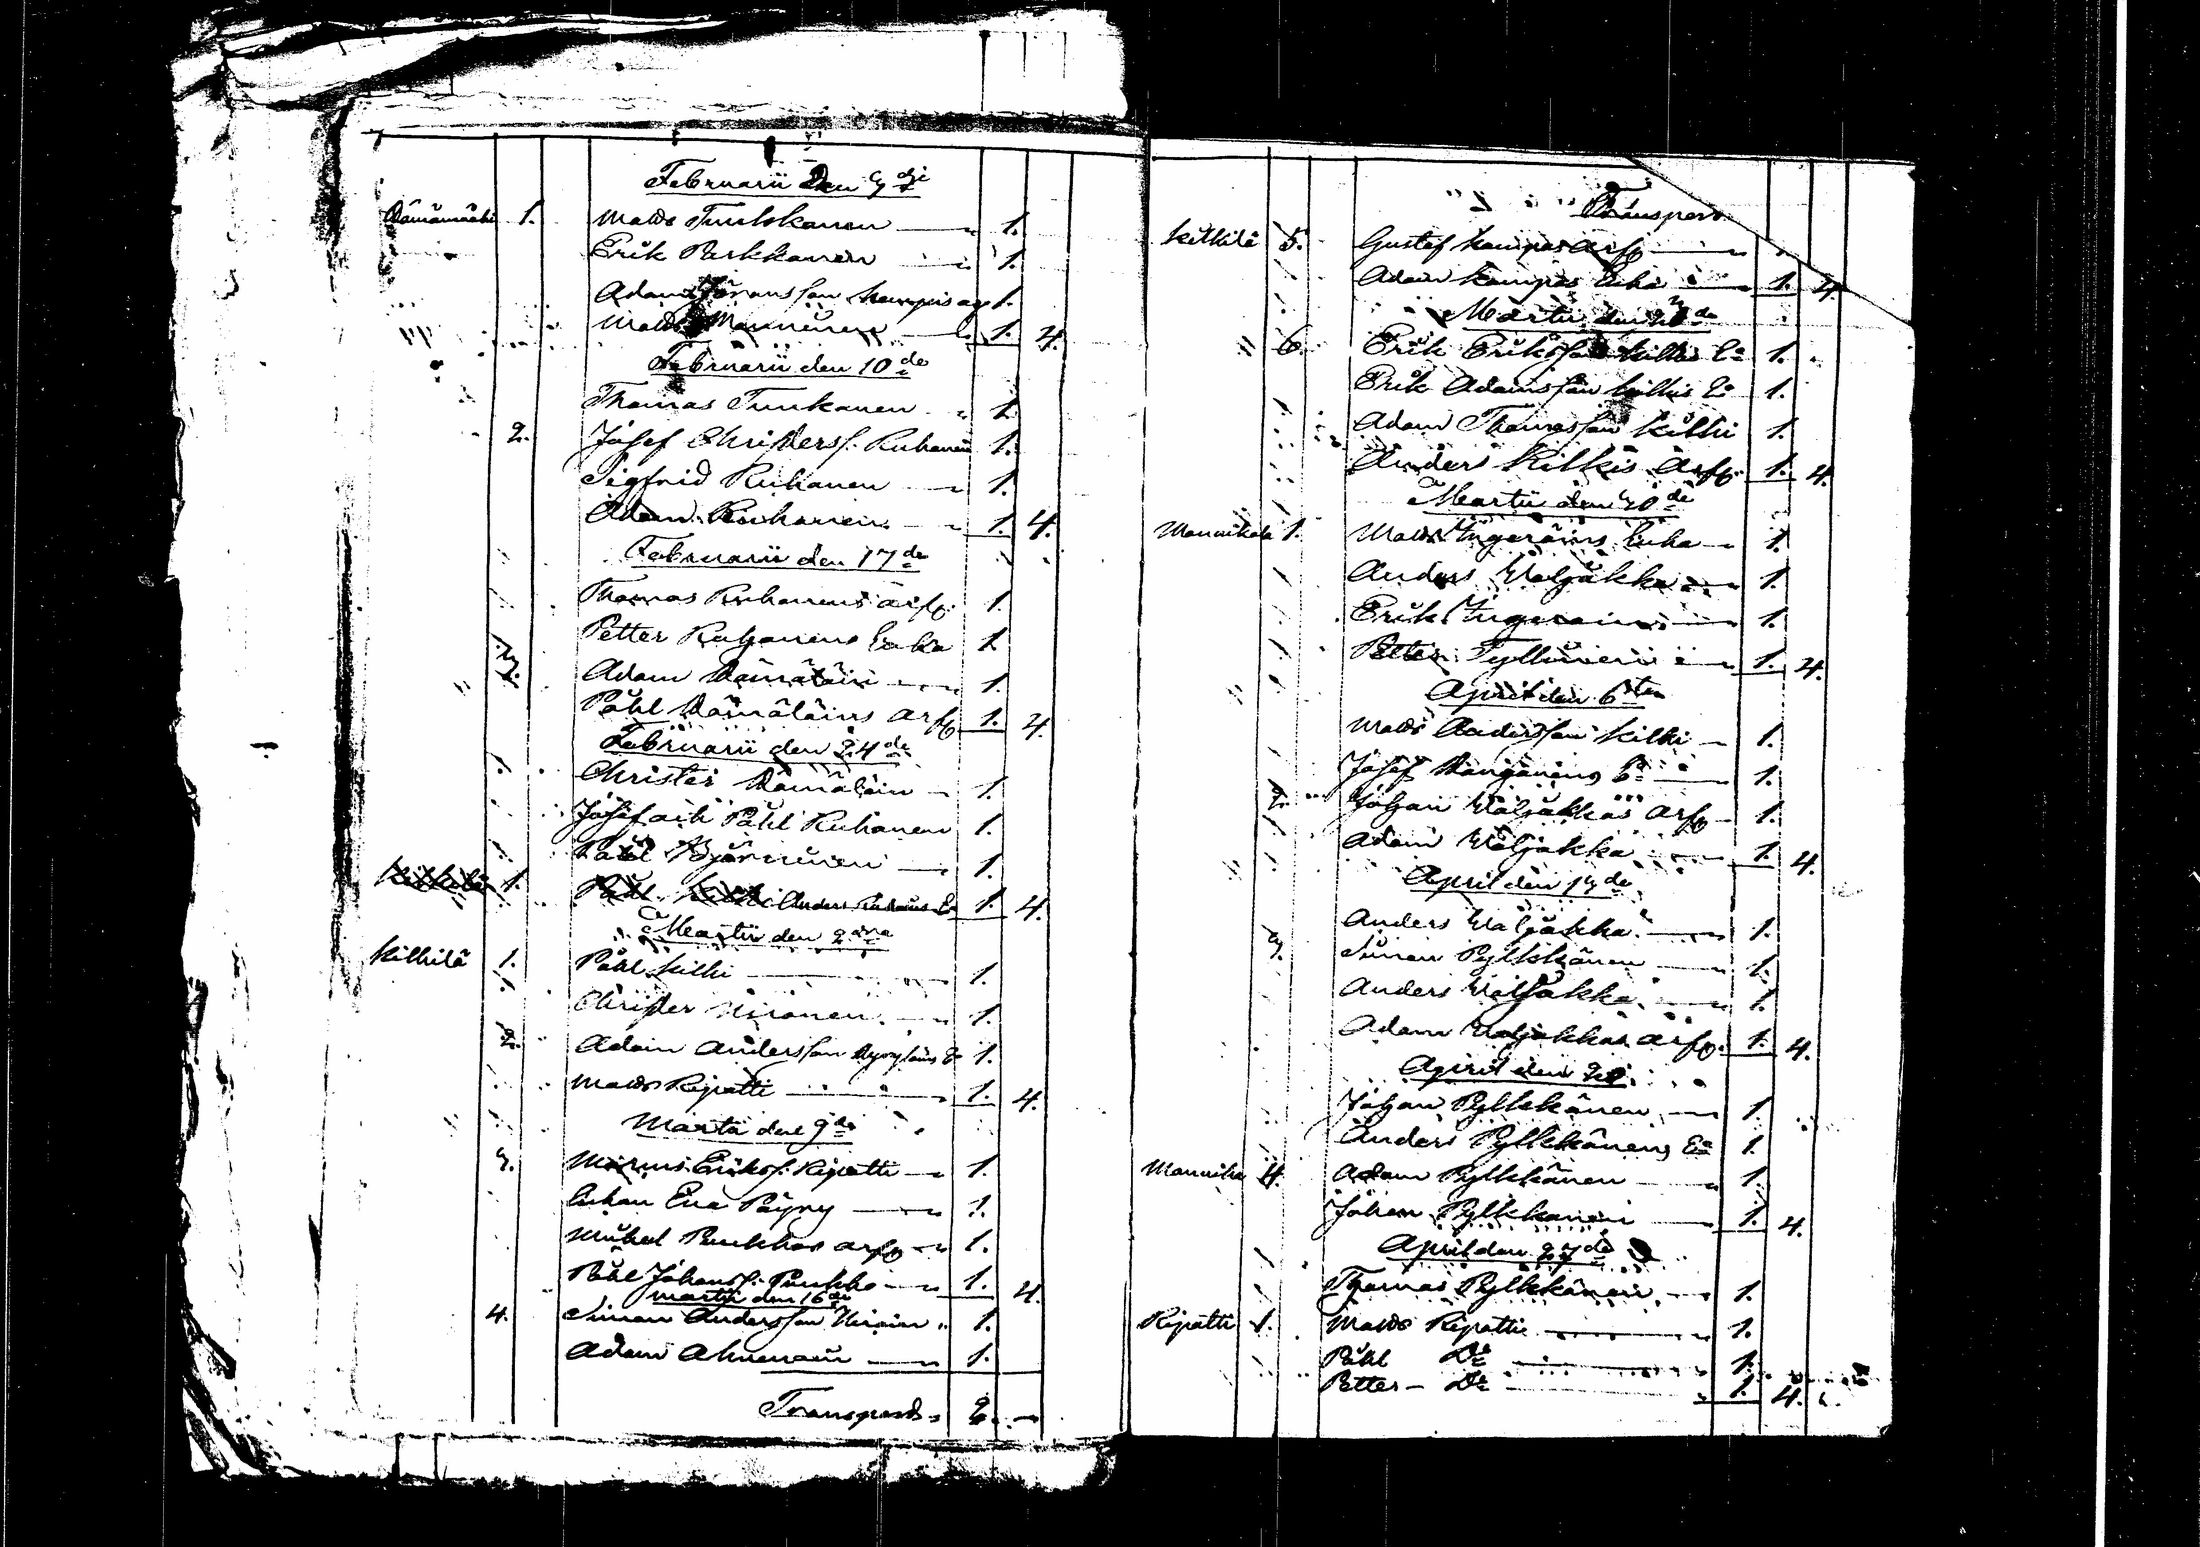 Februarii Den 3dje
1. Matts Tuulskanen 1.
Erik Parkkanen 1.
Adam Göransson 1.
Matts Manninen 1. 4.
Februarii den 10de
Thomas Tuukanen 1.
2. Josef Christerss. Ruhanen 1.
Sigfrid Ruhanen 1.
Adam Ruhanen 1. 4.
Februarii den 17de
Thomas Ruhanens arfv. 1.
Petter Ruhanens Enka 1.
3. Adam Dämäläin 1.
Påhl Dämäläins arfv 1. 4.
Februarii den 24de
Christer Dämäläin 1.
Josef och Påhl Ruhanen 1.
Påhl Björninen 1.
1. Påhl Anders 1. 4.
Martii den 2dra
Kilkilä 1. Påhl Kilki 1.
Christer Hironen 1.
2. Adam Andersson 1.
Matts Ripatti 1. 4.
Martii den 9de
3. Erikss. Ripatti 1.
Enkan Eva Pöyry 1.
Mikel Punkkas arfv 1.
Påhl Johanss. Punkka 1. 4.
Martii den 16de
4. Simon Andersson 1.
Adam Ahvenain 1.
Transport 2.
Transport
Kilkilä 5. Gustaf Kampas arfv
Adam Kampas Enka 1. 4.
Martii den 23de
6. Erik Eriksson Kilkis Ea 1.
Erik Adamsson Kilkis Ea 1.
Adam Thomasson Kilki 1.
Anders Kilkis arfv. 1. 4.
Martii den 30de
Mannikala 1. Matts Ingeröins Enka 1.
Anders Waljakka 1.
Erik Ingeröin 1.
Petter Tyllinen 1. 4.
April den 6ten
Matts Andersson Kilki 1.
Josef 1.
2. Johan Waljakkas arfv 1.
Adam Waljakka 1. 4.
April den 13de
Anders Waljakka 1.
3. Simon Pylkkänen 1.
Anders Waljakka 1.
Adam Waljakkas arfv. 1. 4.
April den 20.
Johan Pylkkänen 1.
Anders Pylkkänens Ea 1.
Mannika 4. Adam Pylkkänen 1.
Johan Pylkkänen 1. 4.
April den 27de
Thomas Pylkkänen 1.
Ripatti 1. Matts Ripatti 1.
Påhl Do 1.
Petter Do 1. 4.